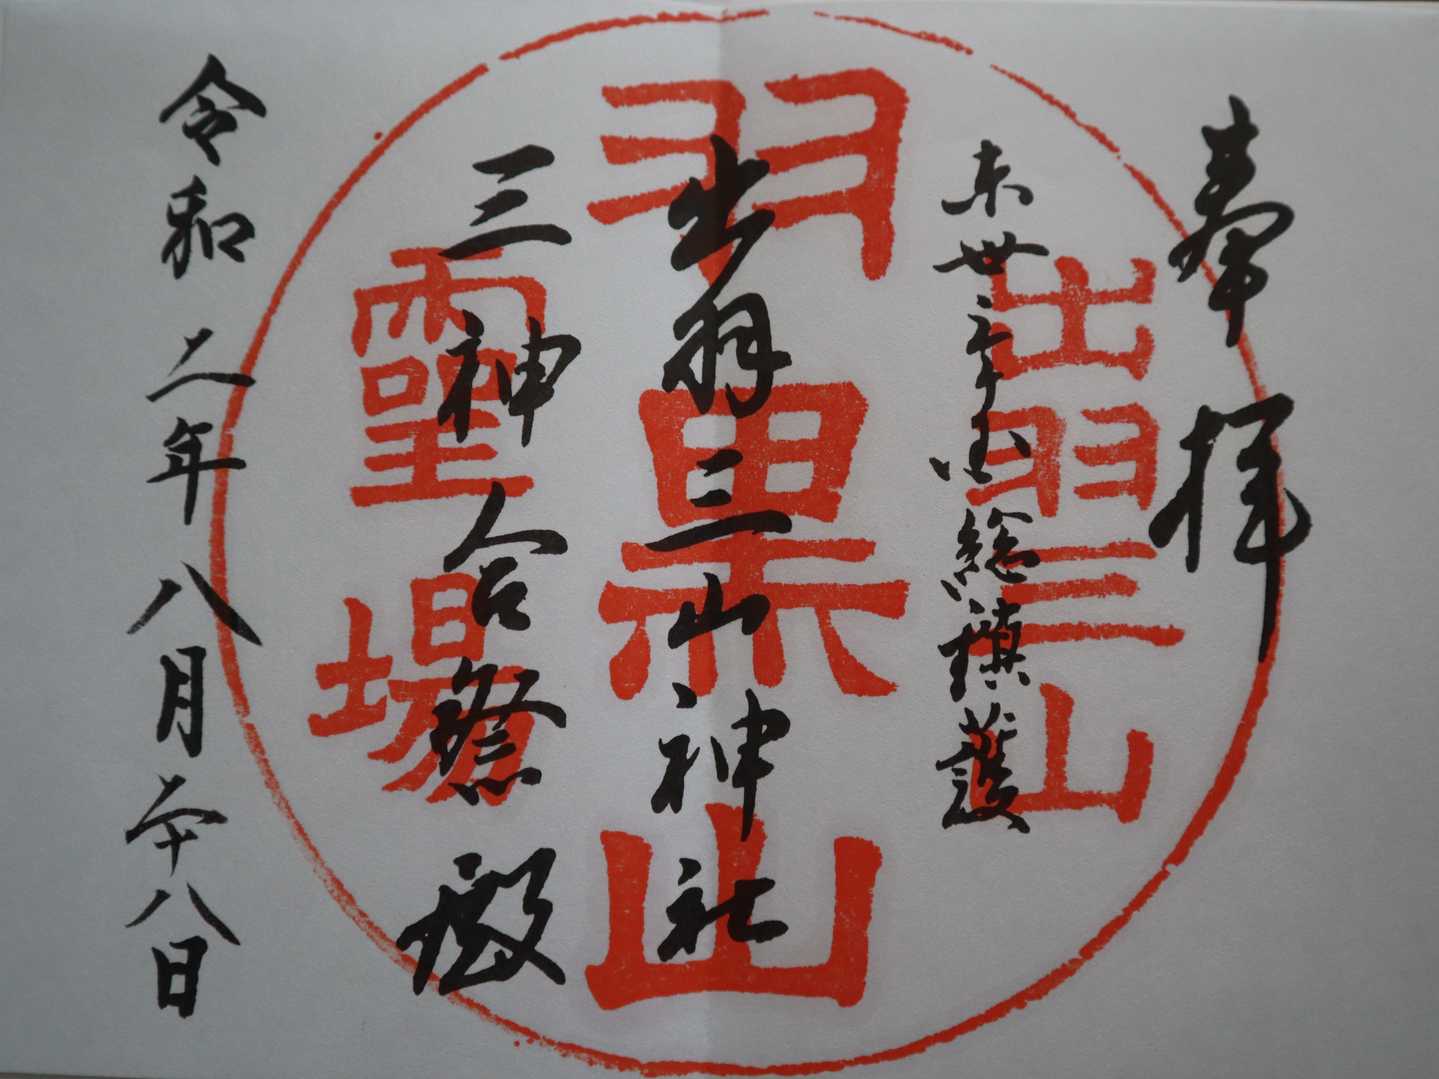 奉拝
東丗三ヶ国総鎮護
出羽三山神社
三神合祭殿
令和二年八月二十八日
出羽三山
羽黒山
霊場